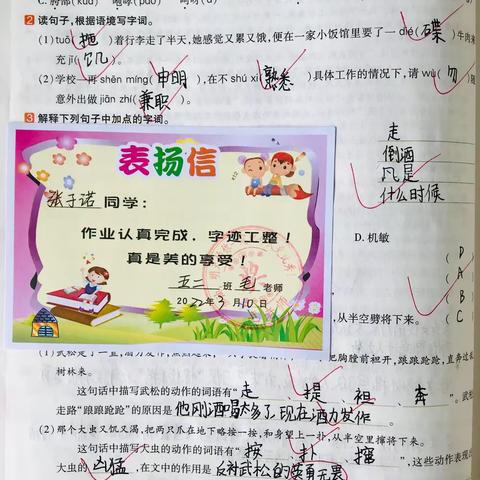 2 读句子,根据语境写字词。
(1)tuō(拖)着行李走了半天,她感觉又累又饿,便在一家小饭馆里要了一dié(碟)牛肉
充jī(饥)。
(2)学校一再shēn míng(申明),在不shú xī(熟悉)具体工作的情况下,请wù(勿)
意外出做jiān zhí(兼职)。
3 解释下列句子中加点的字词。
走
倒酒
凡是
什么时候
D. 机敏
(D
(A
(B
,从半空劈将下来。 (C
表扬信
张子诺同学:
作业认真完成,字迹工整!
真是美的享受!
五三班毛老师
2022年3月10日
把胸膛前袒开,踉踉跄跄,直奔过
树林来。
这句话中描写武松的动作的词语有“走、提、袒、奔”。武
走路“踉踉跄跄”的原因是他刚酒喝太多了,现在酒力发作。
(2)那个大虫又饥又渴,把两只爪在地下略按一按,和身望上一扑,从半空里撺将下来。
这句话中描写大虫的动作的词语有“按、扑、撺”,这些动作表现
大虫的凶猛,在文中的作用是反衬武松的英勇无畏